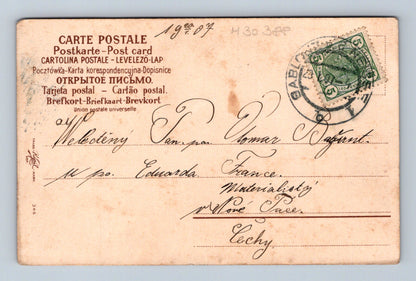 CARTE POSTALE
Postkarte - Post card
CARTOLINA POSTALE - LEVELEZŐ-LAP
Pocztówka-Karta korespondencyjna-Dopisnice
ОТКРЫТОЕ ПИСЬМО.
Tarjeta postal - Cartão postal.
Brefkort-Briefkaart-Brevkort
Union postale universelle
19 07
H 30 388
Velectěný Pan, pan Otomar
u po. Eduarda France.
Materialisty
v Nové Pace.
Čechy